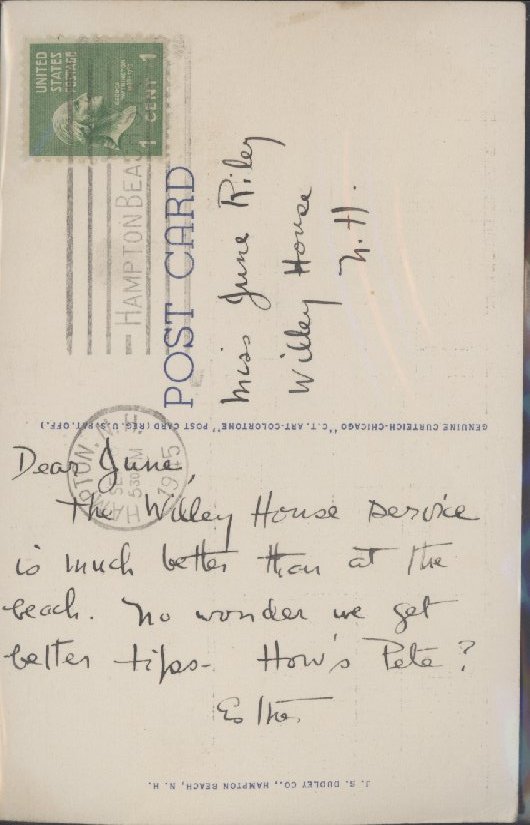 UNITED
STATES
POSTAGE
1 CENT 1
HAMPTON BEA
POST CARD
Miss June Riley
Willey House
N.H.
GENUINE CURTEICH-CHICAGO "C.T. ART-COLORTONE" POST CARD (REG. U.S. PAT. OFF.)
530 M
Dear June,
The Willey House service
is much better than at the
beach. No wonder we get
better tips- How's Pete?
J. S. DUDLEY CO., HAMPTON BEACH, N. H.